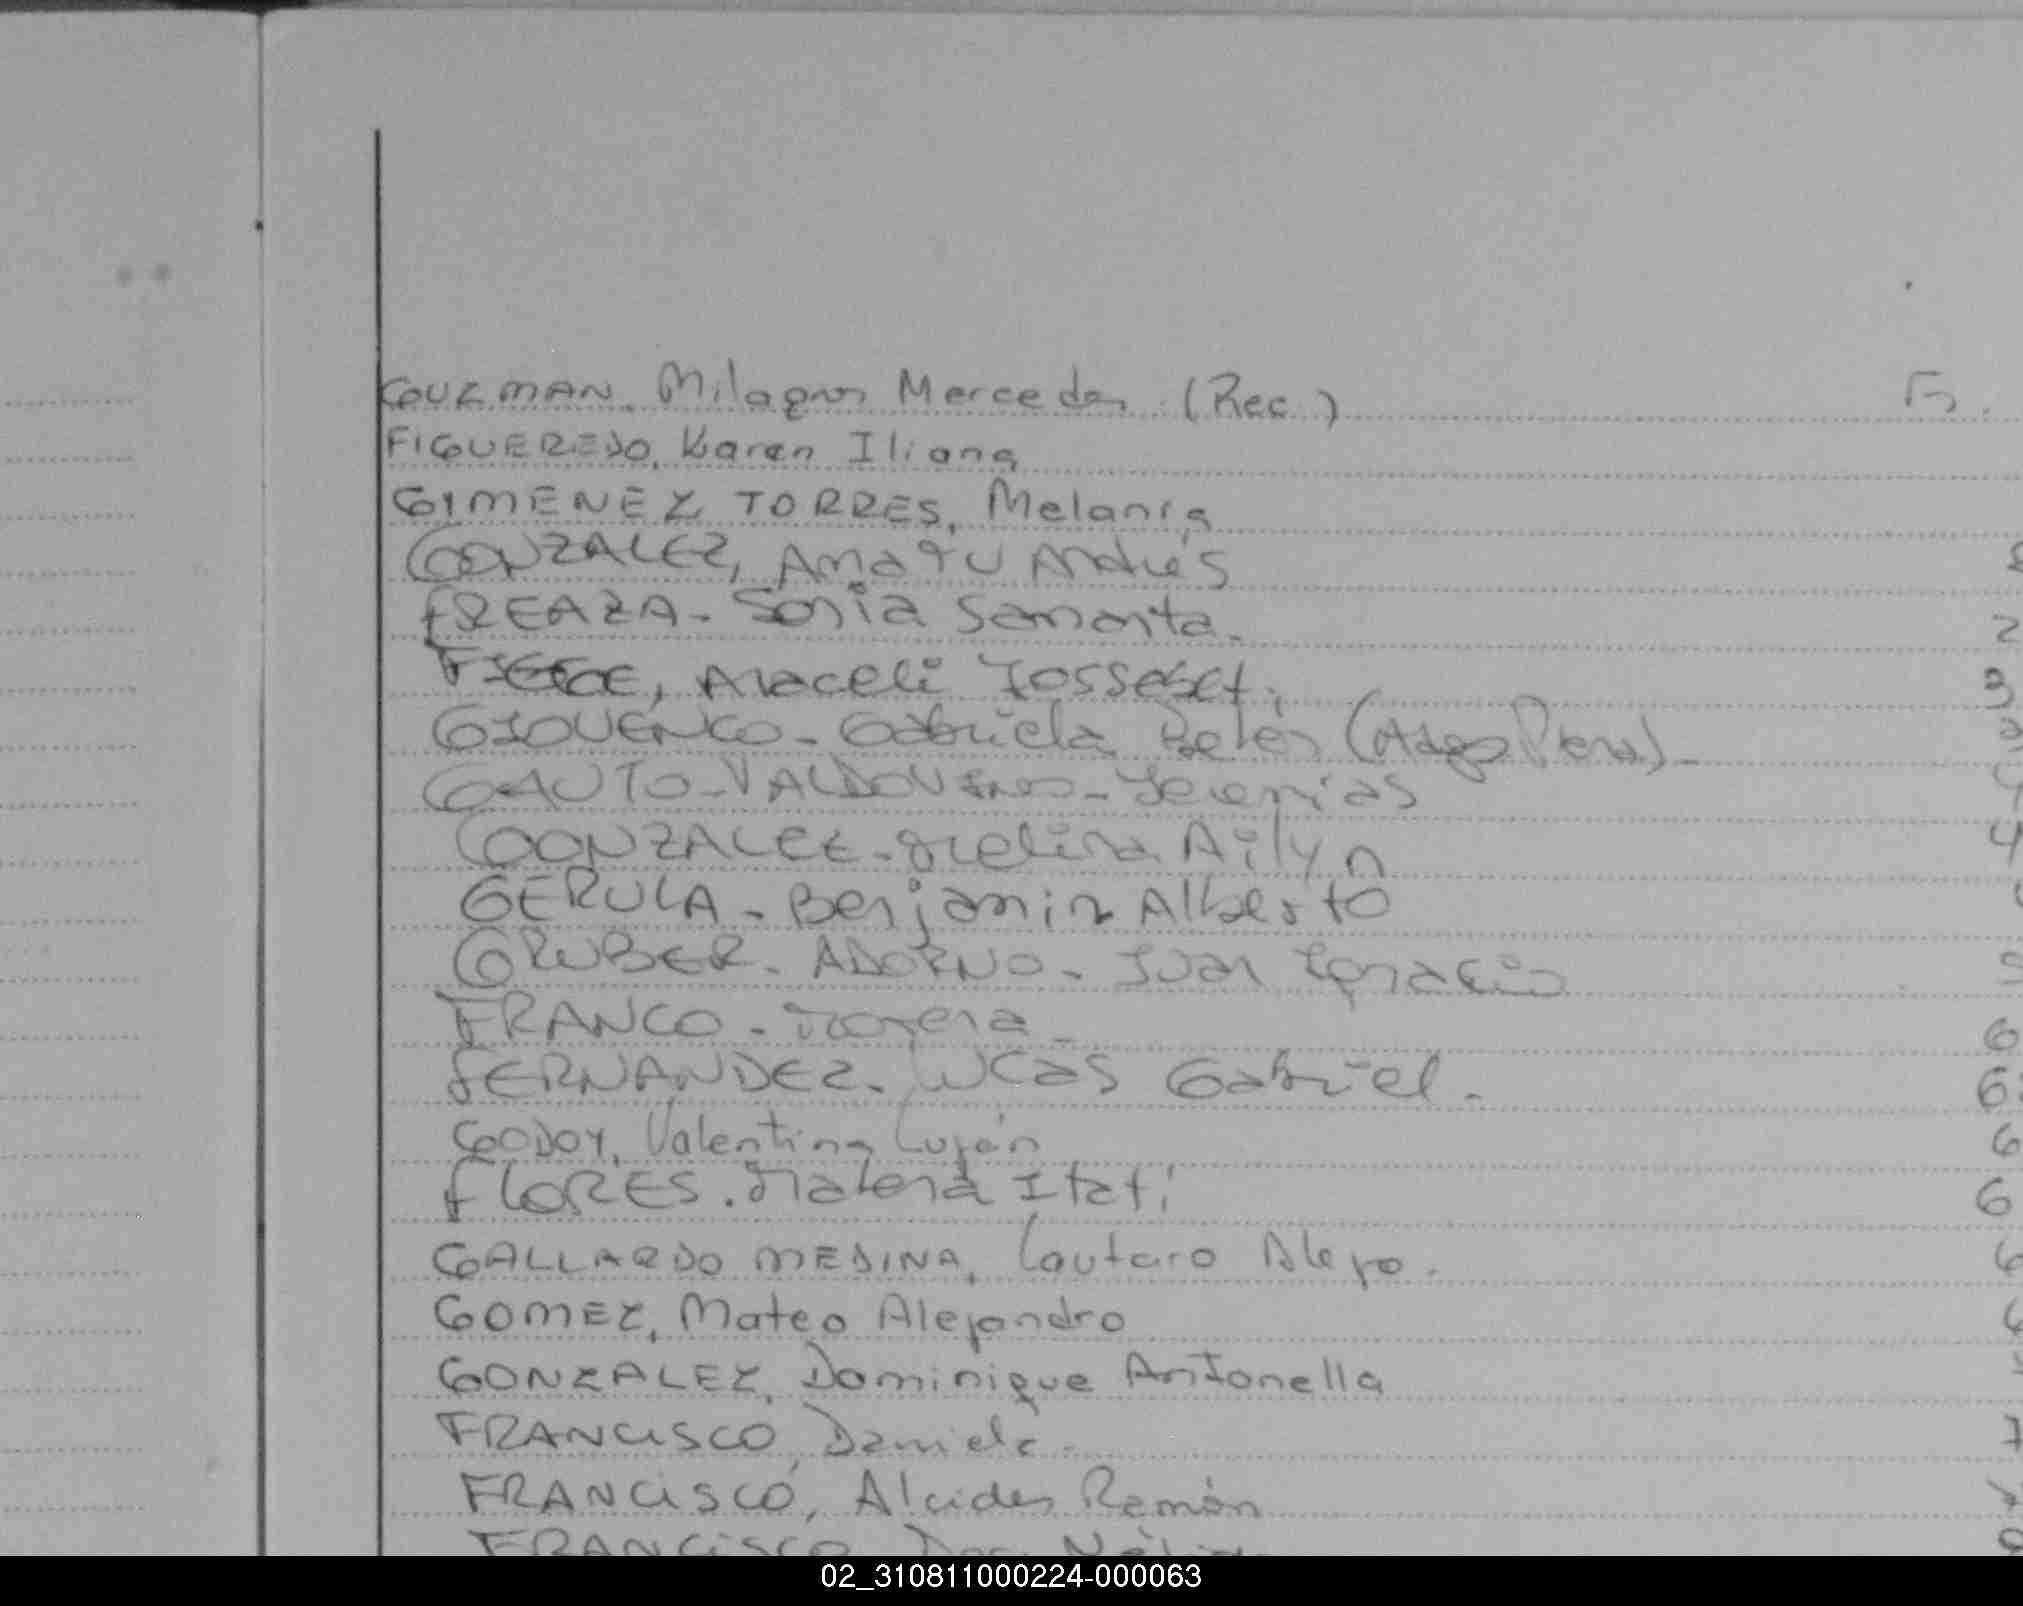 GUZMAN. Milagros Mercedes (Rec.)
FIGUEREDO, Karen Iliana
GIMENEZ TORRES, Melania
GONZALEZ, Amaru Andrés 8
FREAZA - Sonia Samanta. 2
Araceli 3
GIOVENCO - Gabriela Belén (Adop. Plena) -
GAUTO - VALDOVINOS - Jeremías
GONZALEZ - Melina Ailyn 4
GERULA - Benjamin Alberto
GRUBER - ADORNO - Juan Ignacio 5
FRANCO - Morena - 6
FERNANDEZ. Lucas Gabriel. 6
GODOY, Valentina Luján 6
FLORES. Malena Itatí 6
GALLARDO MEDINA, Lautaro Alejo. 6
GOMEZ, Mateo Alejandro 6
GONZALEZ, Dominique Antonella
FRANCISCO, Daniela. 7
FRANCISCO, Alcides Ramón 7
FRANCISCO
02_310811000224-000063